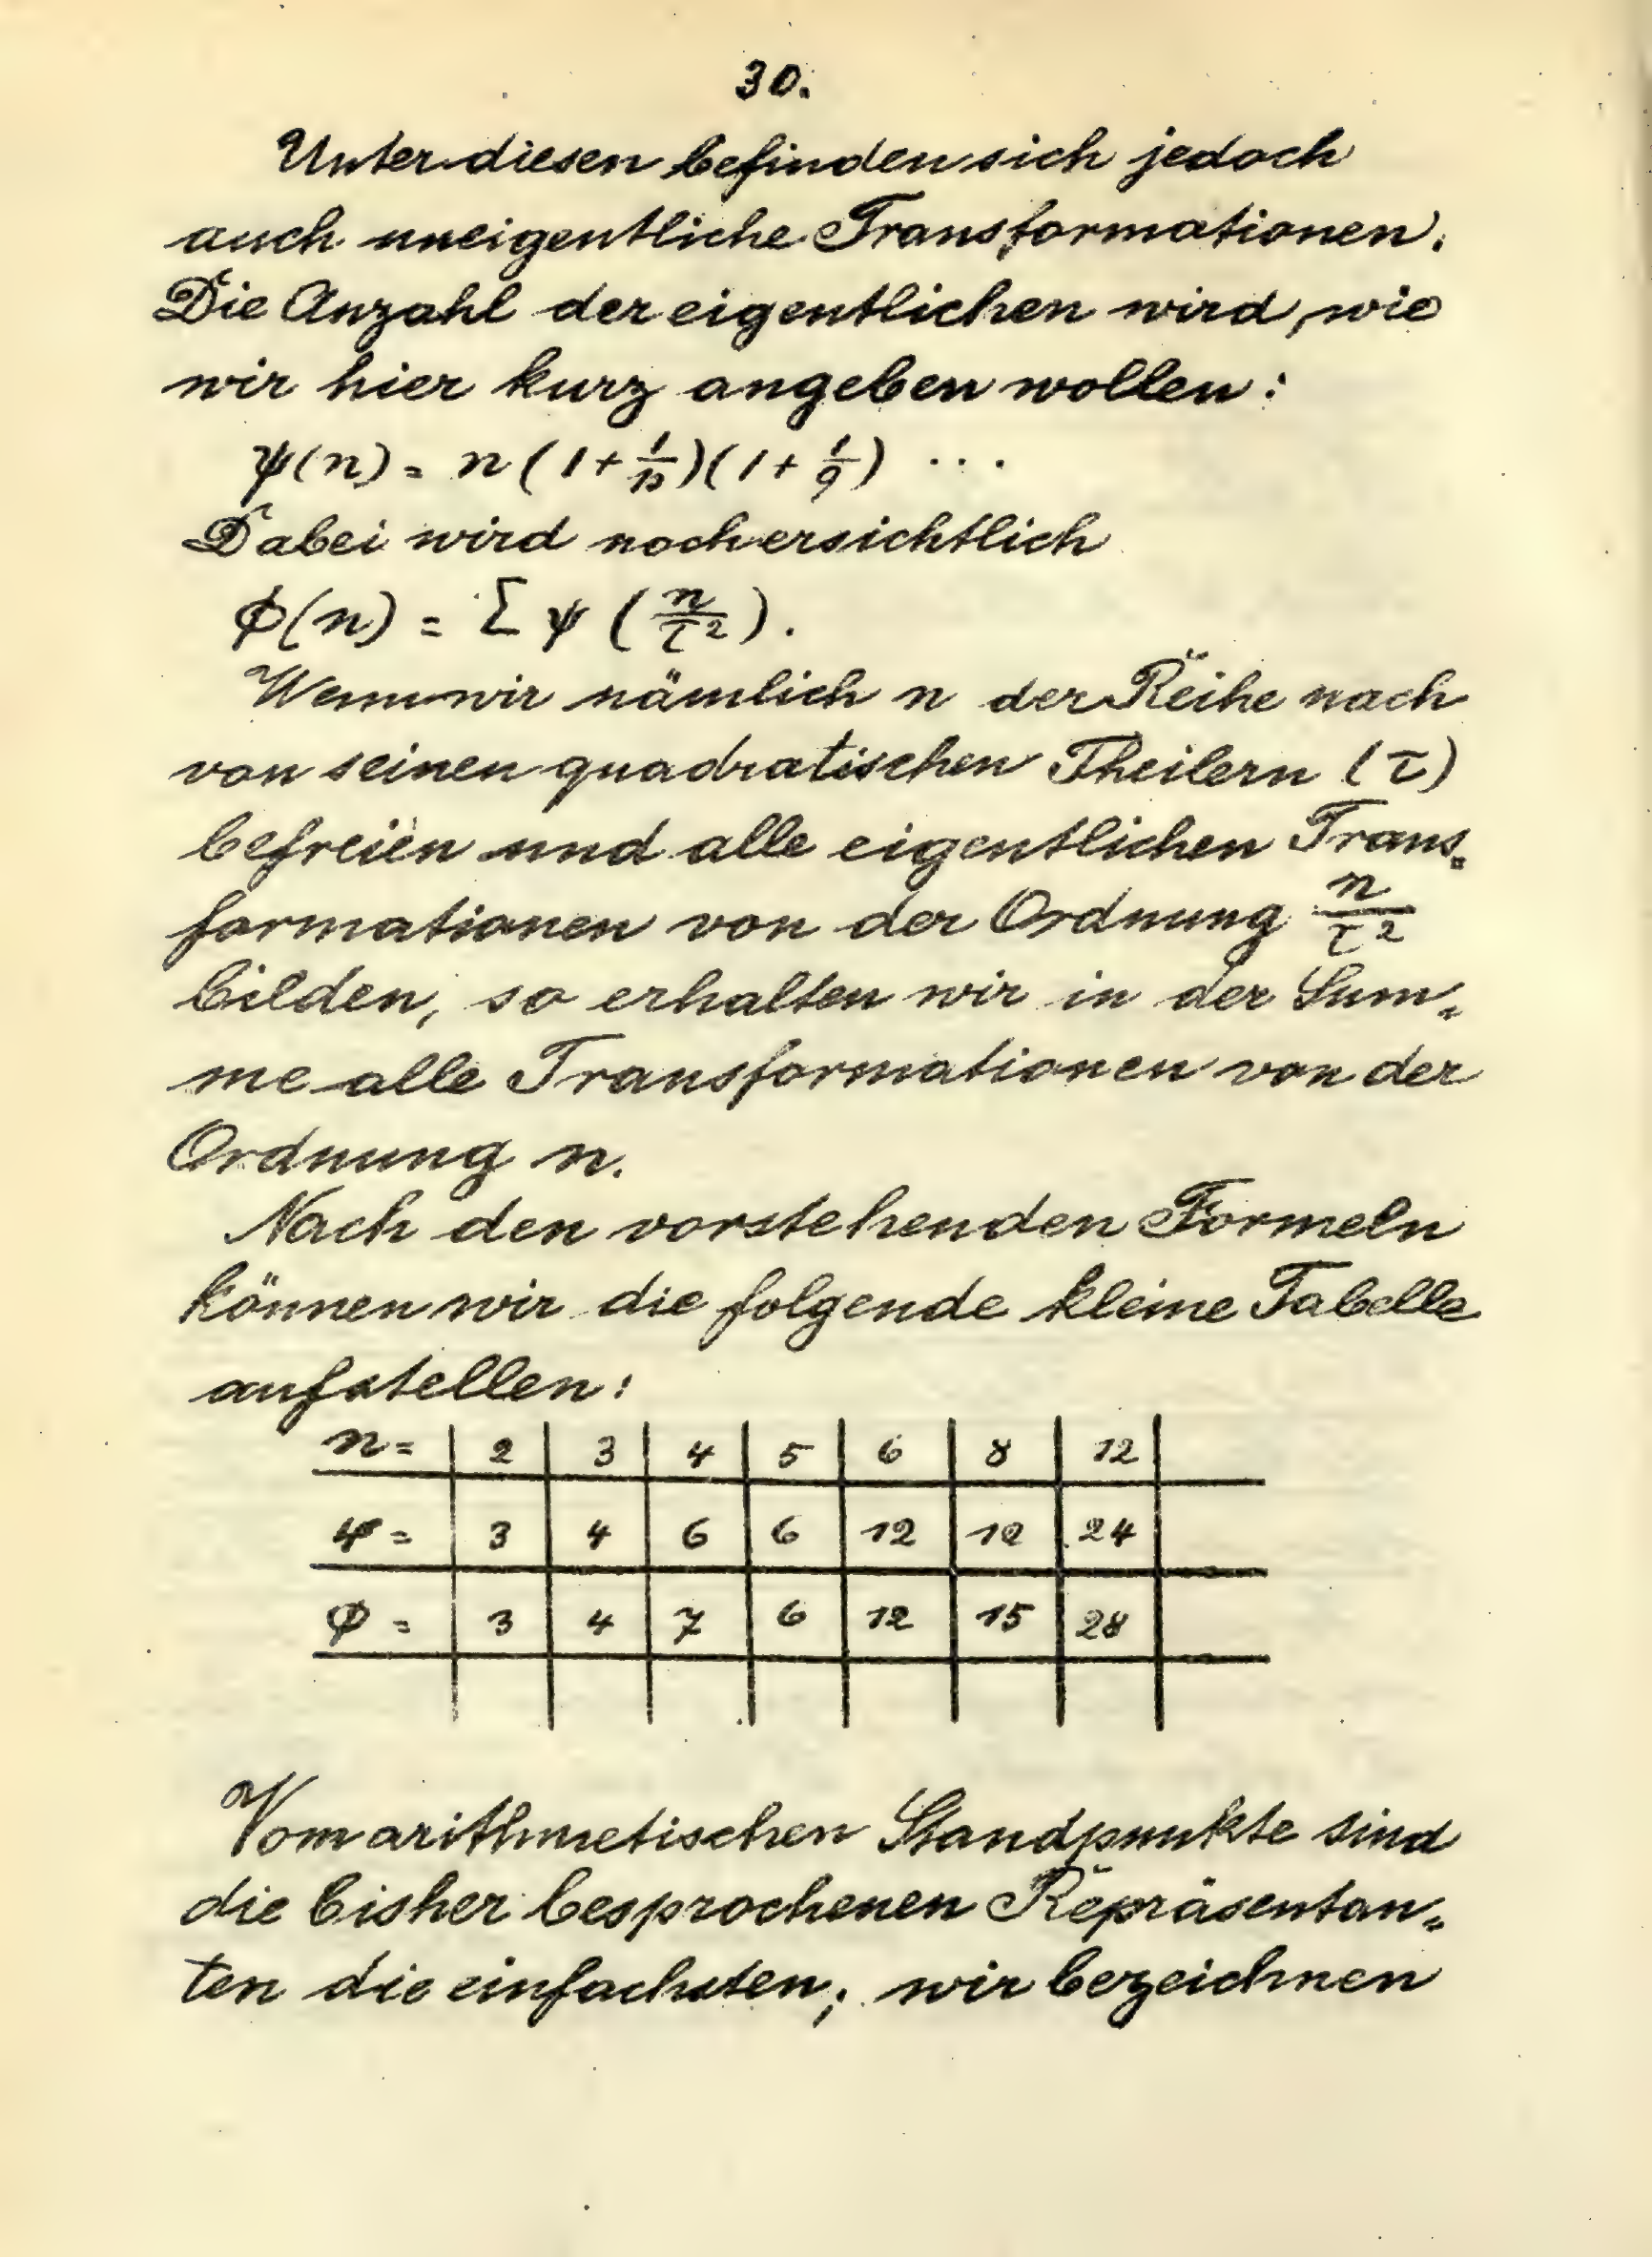 30.
Unter diesen befinden sich jedoch
auch uneigentliche Transformationen.
Die Anzahl der eigentlichen wird, wie
wir hier kurz angeben wollen:
ψ(n) = n (1 + 1/p)(1 + 1/q) ...
Dabei wird noch ersichtlich
Φ(n) = Σ ψ (n/τ²).
Wenn wir nämlich n der Reihe nach
von seinen quadratischen Theilern (τ)
befreien und alle eigentlichen Trans-
formationen von der Ordnung n/τ²
bilden, so erhalten wir in der Sum-
me alle Transformationen von der
Ordnung n.
Nach den vorstehenden Formeln
können wir die folgende kleine Tabelle
aufstellen:
n = 2 3 4 5 6 8 12
ψ = 3 4 6 6 12 12 24
Φ = 3 4 7 6 12 15 28
Vom arithmetischen Standpunkte sind
die bisher besprochenen Repräsentan-
ten die einfachsten; wir bezeichnen